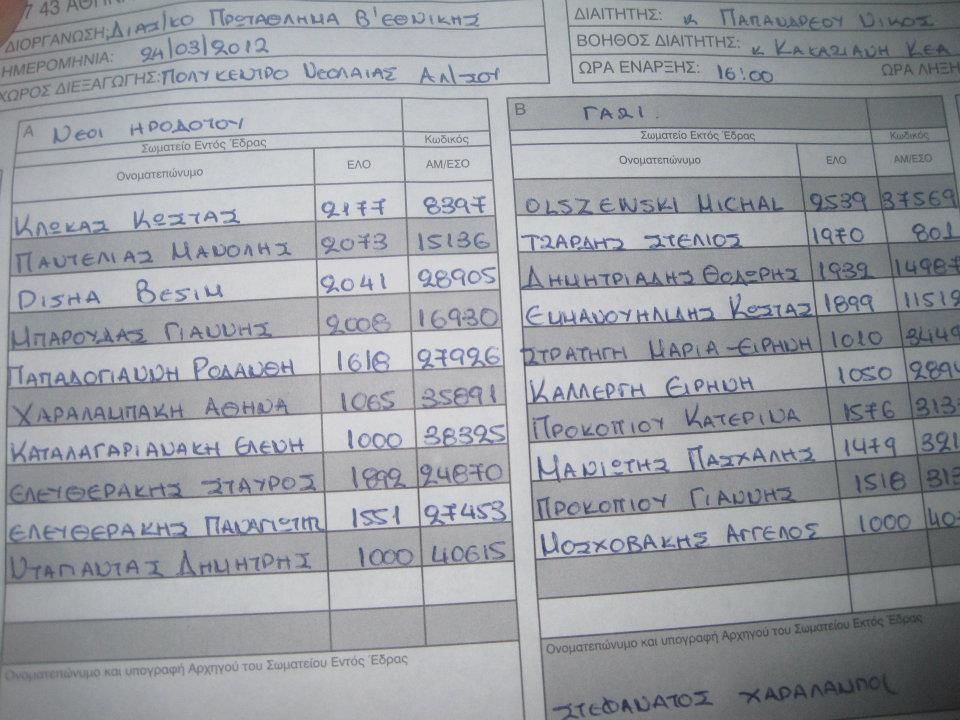 7 43 ΑΘΗΝ
ΔΙΟΡΓΑΝΩΣΗ: ΔΙΑΣ/ΚΟ ΠΡΩΤΑΘΛΗΜΑ Β' ΕΘΝΙΚΗΣ
ΗΜΕΡΟΜΗΝΙΑ: 24/03/2012
ΧΩΡΟΣ ΔΙΕΞΑΓΩΓΗΣ: ΠΟΛΥΚΕΝΤΡΟ ΝΕΟΛΑΙΑΣ
ΔΙΑΙΤΗΤΗΣ: κ ΠΑΠΑΝΔΡΕΟΥ ΝΙΚΟΣ
ΒΟΗΘΟΣ ΔΙΑΙΤΗΤΗΣ: κ ΚΑΚΑΣΙΑΝΗ ΚΕΑ
ΩΡΑ ΕΝΑΡΞΗΣ: 16:00 ΩΡΑ ΛΗΞΗ
Α ΝΕΟΙ ΗΡΟΔΟΤΟΥ
Σωματείο Εντός Έδρας Κωδικός
Ονοματεπώνυμο ΕΛΟ ΑΜ/ΕΣΟ
ΚΛΩΚΑΣ ΚΩΣΤΑΣ 2177 8397
ΠΑΝΤΕΛΙΑΣ ΜΑΝΟΛΗΣ 2073 15136
DISHA BESIM 2041 28905
ΜΠΑΡΟΥΔΑΣ ΓΙΑΝΝΗΣ 2008 16930
ΠΑΠΑΔΟΓΙΑΝΝΗ ΡΟΔΑΝΘΗ 1618 27926
ΧΑΡΑΛΑΜΠΑΚΗ ΑΘΗΝΑ 1065 35891
ΚΑΤΑΛΑΓΑΡΙΑΝΑΚΗ ΕΛΕΝΗ 1000 38325
ΕΛΕΥΘΕΡΑΚΗΣ ΣΤΑΥΡΟΣ 1892 24870
ΕΛΕΥΘΕΡΑΚΗΣ ΠΑΝΑΓΙΩΤΗΣ 1551 27453
ΝΤΑΠΑΝΤΑΣ ΔΗΜΗΤΡΗΣ 1000 40615
Ονοματεπώνυμο και υπογραφή Αρχηγού του Σωματείου Εντός Έδρας
Β ΓΑΖΙ
Σωματείο Εκτός Έδρας Κωδικός
Ονοματεπώνυμο ΕΛΟ ΑΜ/ΕΣΟ
OLSZEWSKI MICHAL 2539 37569
ΤΖΑΡΔΗΣ ΣΤΕΛΙΟΣ 1970 801
ΔΗΜΗΤΡΙΑΔΗΣ ΘΟΔΩΡΗΣ 1932 14987
ΕΜΜΑΝΟΥΗΛΙΔΗΣ ΚΩΣΤΑΣ 1899 11512
ΣΤΡΑΤΗΓΗ ΜΑΡΙΑ-ΕΙΡΗΝΗ 1010 3449
ΚΑΛΛΕΡΓΗ ΕΙΡΗΝΗ 1050 289
ΠΡΟΚΟΠΙΟΥ ΚΑΤΕΡΙΝΑ 1576 313
ΜΑΝΙΩΤΗΣ ΠΑΣΧΑΛΗΣ 1479 321
ΠΡΟΚΟΠΙΟΥ ΓΙΑΝΝΗΣ 1518 313
ΜΟΣΧΟΒΑΚΗΣ ΑΓΓΕΛΟΣ 1000 40
Ονοματεπώνυμο και υπογραφή Αρχηγού του Σωματείου Εκτός Έδρας
ΣΤΕΦΑΝΑΤΟΣ ΧΑΡΑΛΑΜΠΟΣ